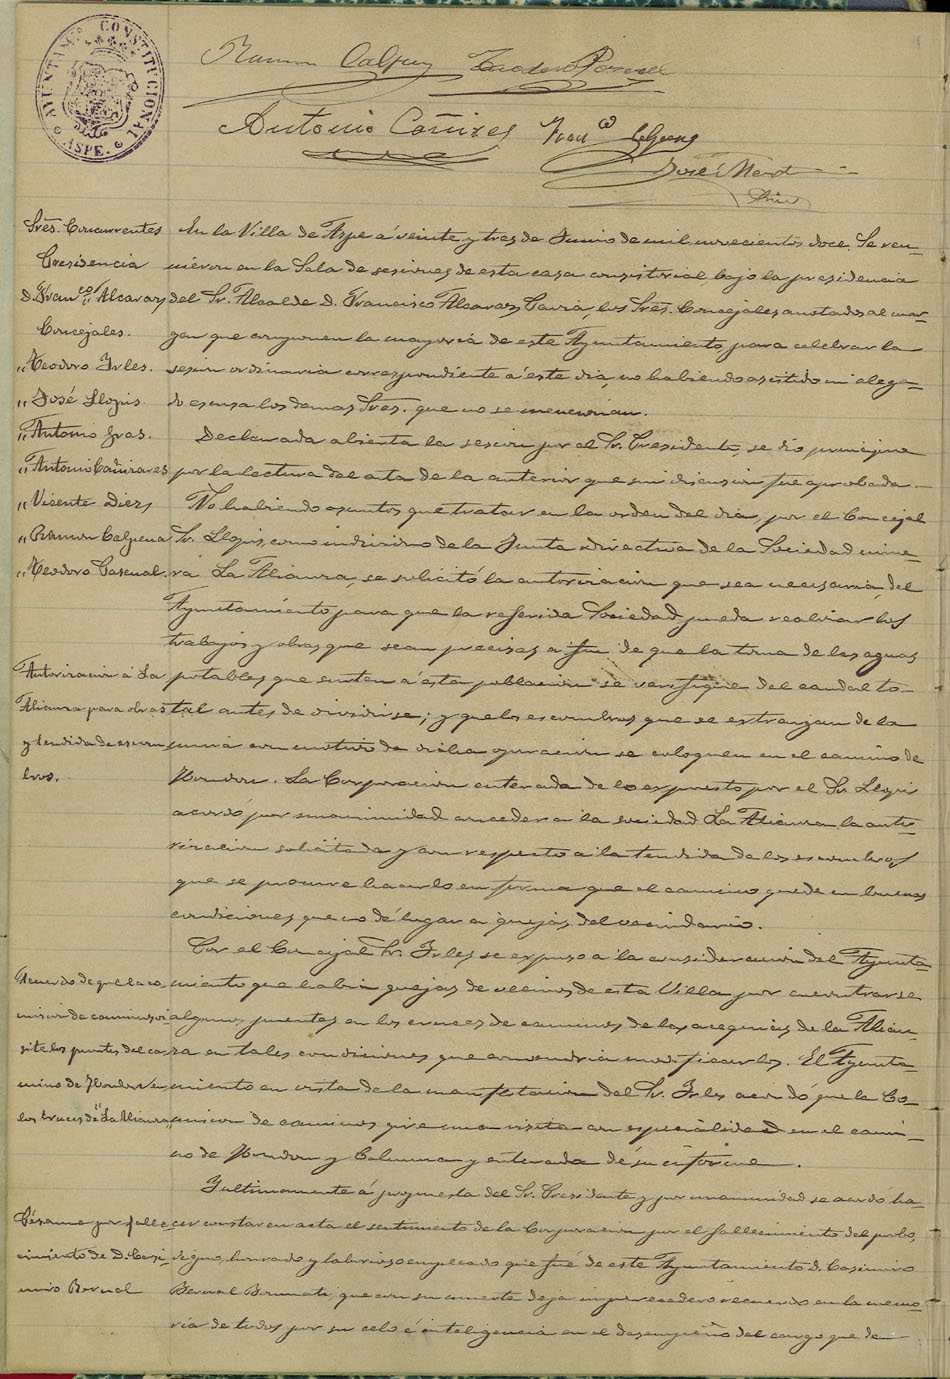 AYUNTAM.º CONSTITUCIONAL
ASPE.
Ramon Calpena Teodoro Pascual
Antonio Cañizares Franco
José
Sres. Concurrentes
Presidencia
D. Franco. Alcaraz
Concejales.
" Teodoro Irles.
" José Llopis
" Antonio Gras.
" Antonio Cañizares
" Vicente Diez
" Ramon Calpena
" Teodoro Pascual.
En la Villa de Aspe á veinte y tres de Junio de mil novecientos doce. Se reu-
nieron en la Sala de sesiones de esta casa consistorial, bajo la presidencia
del Sr. Alcalde D. Francisco Alcaraz Pavia, los Sres. Concejales anotados al mar-
gen que componen la mayoria de este Ayuntamiento para celebrar la
sesion ordinaria correspondiente á este dia, no habiendo asistido ni alega-
do escusa los demas Sres. que no se mencionan.
Declarada abierta la sesion por el Sr. Presidente, se dió principio
por la lectura del acta de la anterior que sin discusion fue aprobada.
No habiendo asuntos que tratar en la orden del dia, por el Concejal
Sr. Llopis, como individuo de la Junta directiva de la Sociedad mine-
ra La Alianza, se solicitó la autorizacion que sea necesaria, del
Ayuntamiento para que la referida Sociedad pueda realizar los
trabajos y obras que sean precisas a fin de que la toma de las aguas
Autorizacion á La
Alianza para obras
y tendida de escom
bros.
potables que surten á esta poblacion se verifique del caudal to-
tal antes de dividirse; y que los escombros que se extraigan de la
mina con motivo de dicha operacion se coloquen en el camino de
Hondon. La Corporacion enterada de lo expuesto por el Sr. Llopis
acordó por unanimidad conceder a la sociedad La Alianza la auto-
rizacion solicitada y con respecto a la tendida de los escombros
que se procure hacerlo en forma que el camino quede en buenas
condiciones que no dé lugar a quejas del vecindario.
Por el Concejal Sr. Irles se expuso a la consideracion del Ayunta-
Acuerdo de que la co
mision de caminos vi
site los puentes del ca
mino de Hondon en
los cruces de "La Alianza"
miento que habia quejas de vecinos de esta Villa por encontrarse
algunos puentes en los cruces de caminos de las acequias de la Alian-
za en tales condiciones que convendria modificarlos. El Ayunta-
miento en vista de la manifestacion del Sr. Irles acordó que la Co-
mision de caminos gire una visita con especialidad en el cami-
no de Hondon y Columna y enterada dé su informe.
Y ultimamente á propuesta del Sr. Presidente y por unanimidad se acordó ha-
Pésame por falle
cimiento de D. Casi-
miro Bernal
cer constar en acta el sentimiento de la Corporacion por el fallecimiento del probo,
digno, honrado y laborioso empleado que fué de este Ayuntamiento D. Casimiro
Bernal que con su muerte deja imperecedero recuerdo en la memo-
ria de todos por su celo é inteligencia en el desempeño del cargo que de